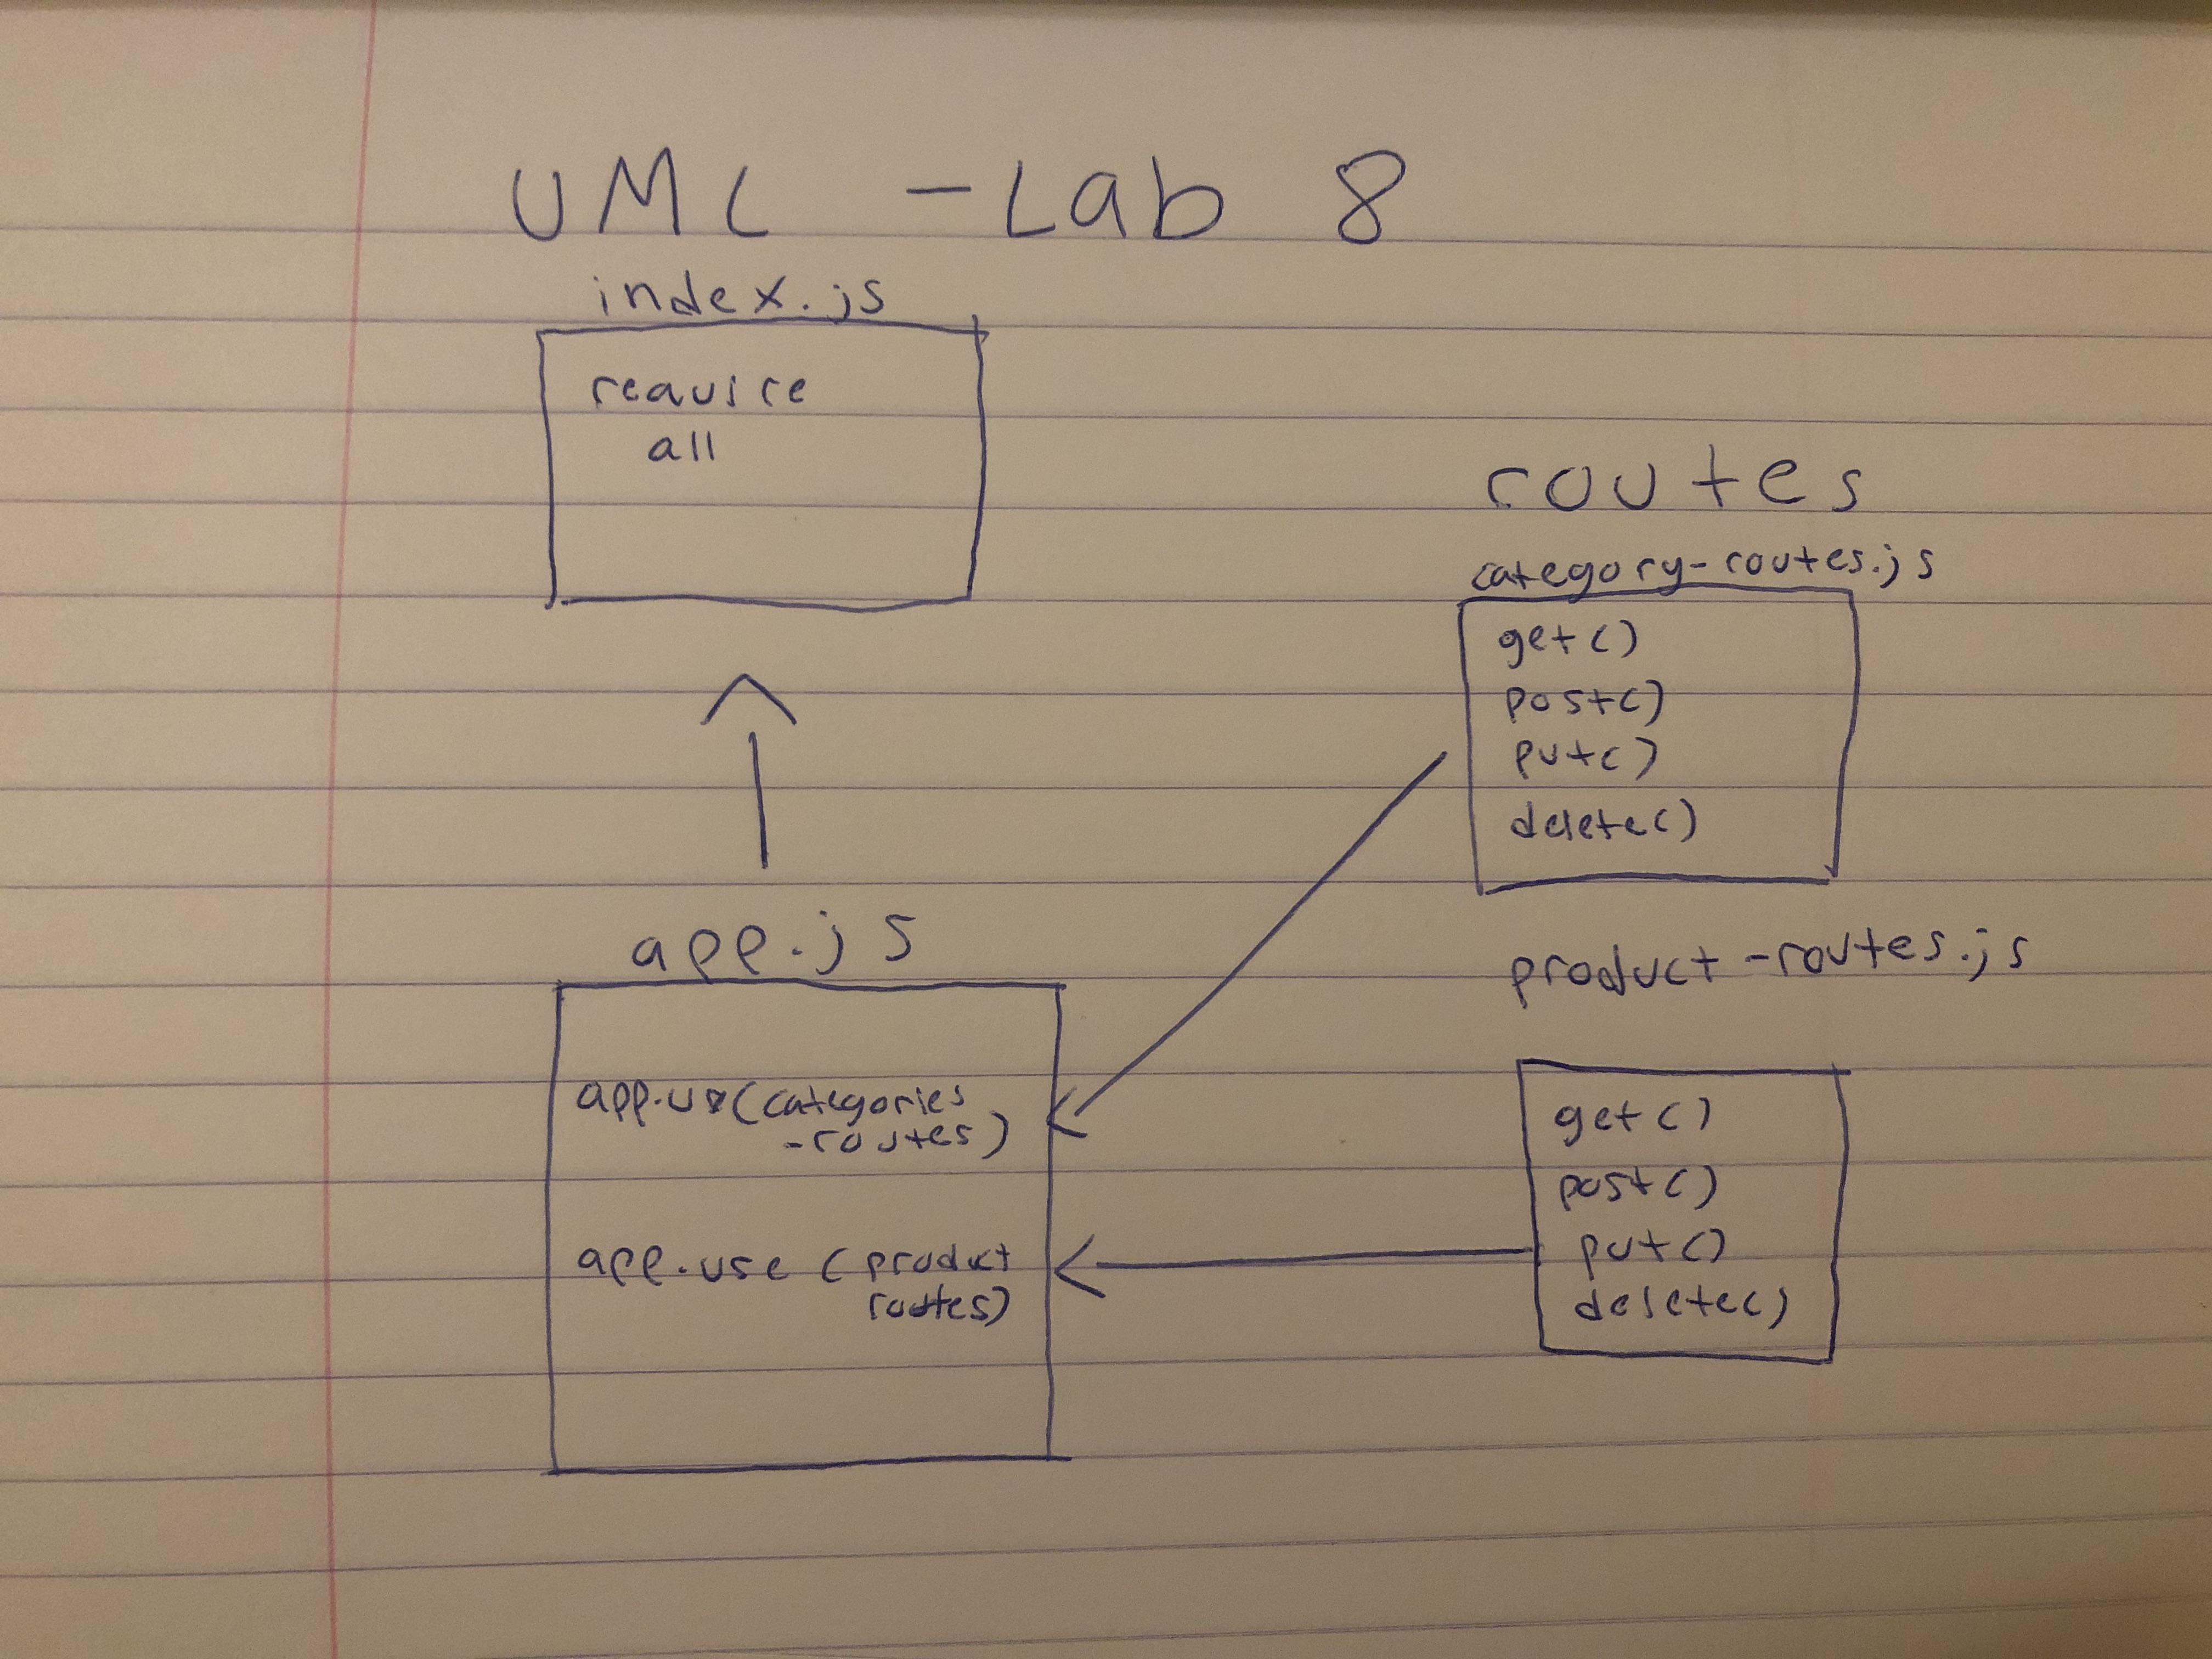 UML - Lab 8
index.js
require
all
app.js
app.use(categories
-routes)
app.use(product
routes)
routes
category-routes.js
get()
post()
put()
delete()
product-routes.js
get()
post()
put()
delete()